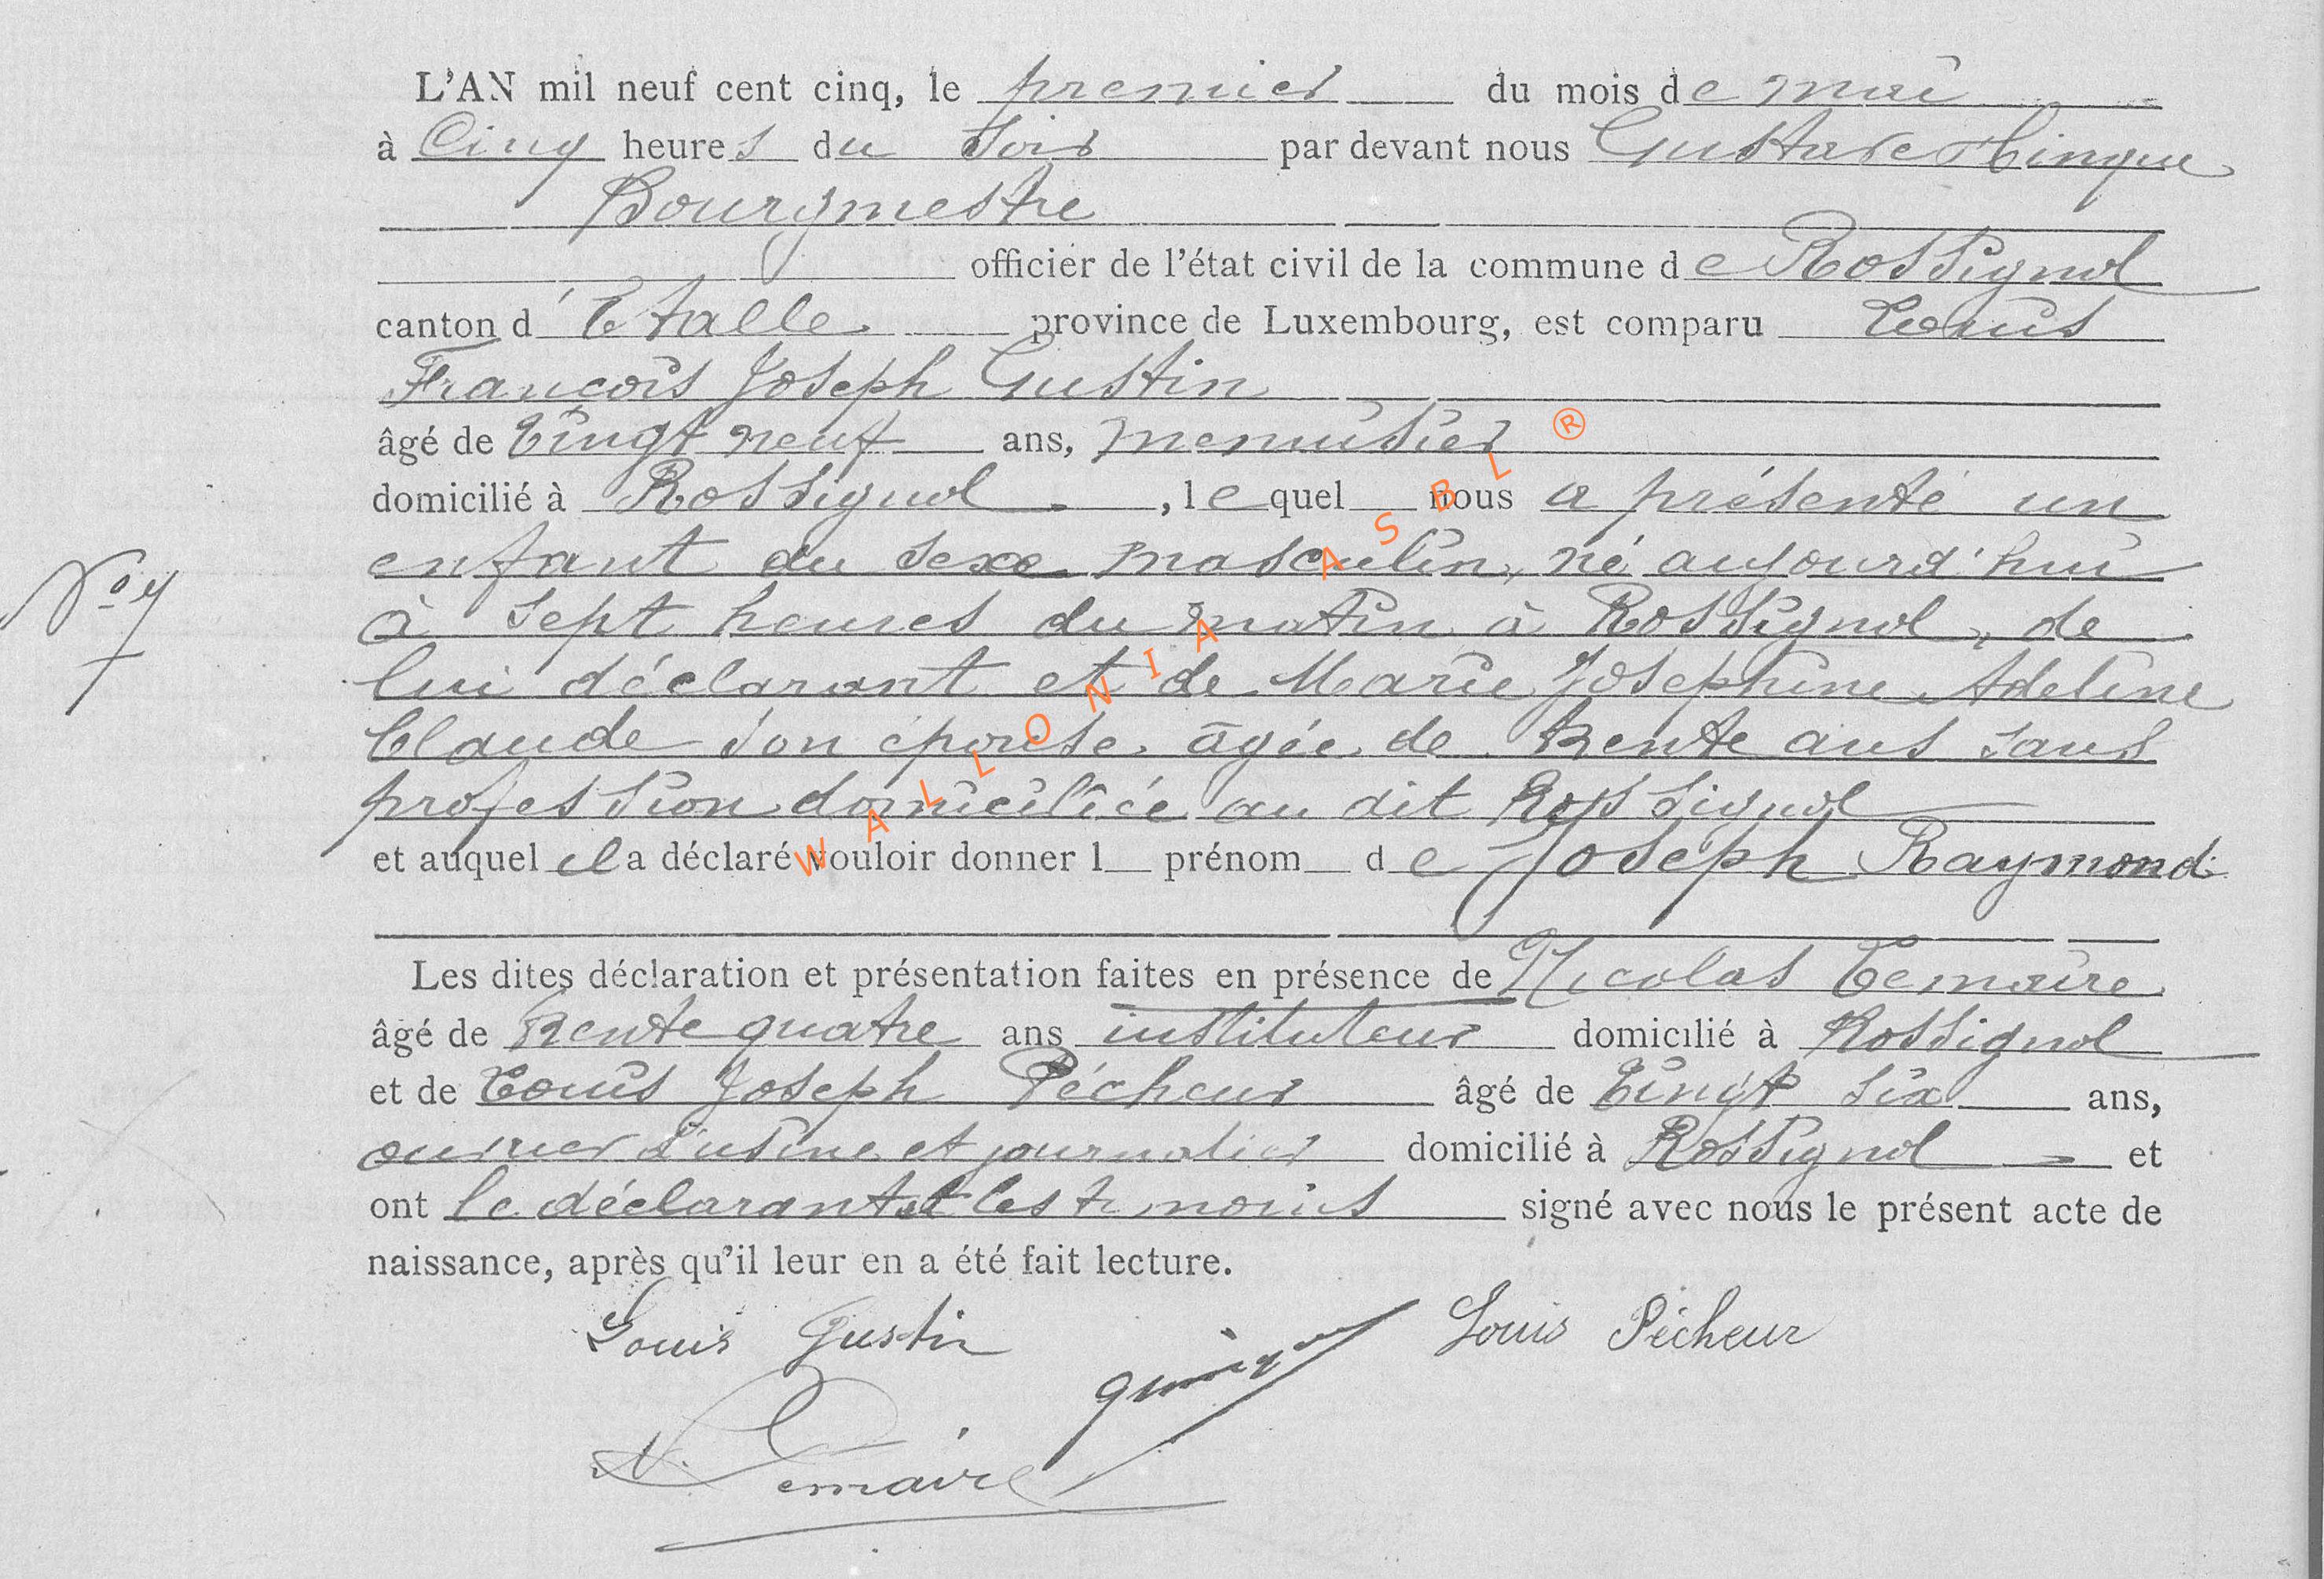 L'AN mil neuf cent cinq, le premier du mois de mai
à Cinq heures du soir par devant nous Gustave
Bourgmestre
officier de l'état civil de la commune de Rossignol
canton d'Etalle province de Luxembourg, est comparu Louis
François Joseph Gustin
âgé de Vingt neuf ans, menuisier
domicilié à Rossignol, lequel nous a présenté un
enfant du sexe masculin, né aujourd'hui
N° 7
à sept heures du matin à Rossignol, de
lui déclarant et de Marie Joséphine Adeline
Claude son épouse âgée de trente ans sans
profession domiciliée au dit Rossignol
et auquel il a déclaré vouloir donner l prénom de Joseph Raymond
Les dites déclaration et présentation faites en présence de Nicolas Lemaire
âgé de trente quatre ans instituteur domicilié à Rossignol
et de Louis Joseph Pécheur âgé de Vingt six ans,
ouvrier d'usine et journalier domicilié à Rossignol et
ont le déclarant et les témoins signé avec nous le présent acte de
naissance, après qu'il leur en a été fait lecture.
Louis Gustin
Louis Pécheur
N. Lemaire
WALLONIA ASBL ®